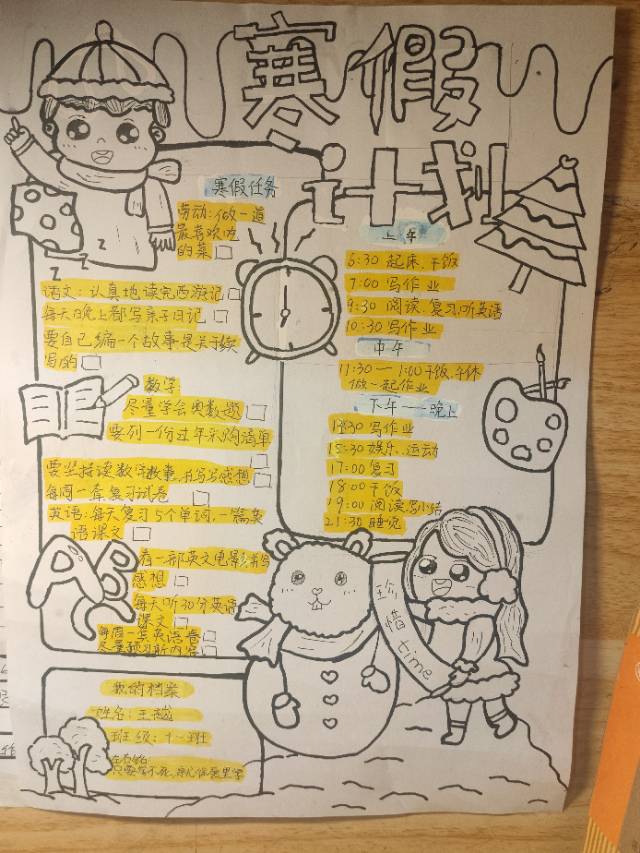 寒假
计划
寒假任务
劳动:做一道
最喜欢吃
的菜
语文:认真地读完西游记
每天晚上都写亲子日记
要自己编一个故事是关于续
写的
数学
尽量学会奥数题
要列一份过年采购清单
要坚持读数学故事,书写写感想
每周一套复习试卷
英语:每天复习5个单词,一篇英
语课文
看一部英文电影,书写
感想
每天听30分英语
课文
每周一套英语卷
尽量预习新内容
ABC
上午
6:30 起床、干饭
7:00 写作业
9:30 阅读、复习、听英语
10:30 写作业
中午
11:30—1:00干饭、午休
做一起作业
下午——晚上
写作业
15:30 娱乐、运动
17:00 复习
18:00 干饭
19:00 阅读、写小结
21:30 睡觉
珍惜time
我的档案
姓名:王
班级:
只要学不死,就往死里学
Z
Z
Z